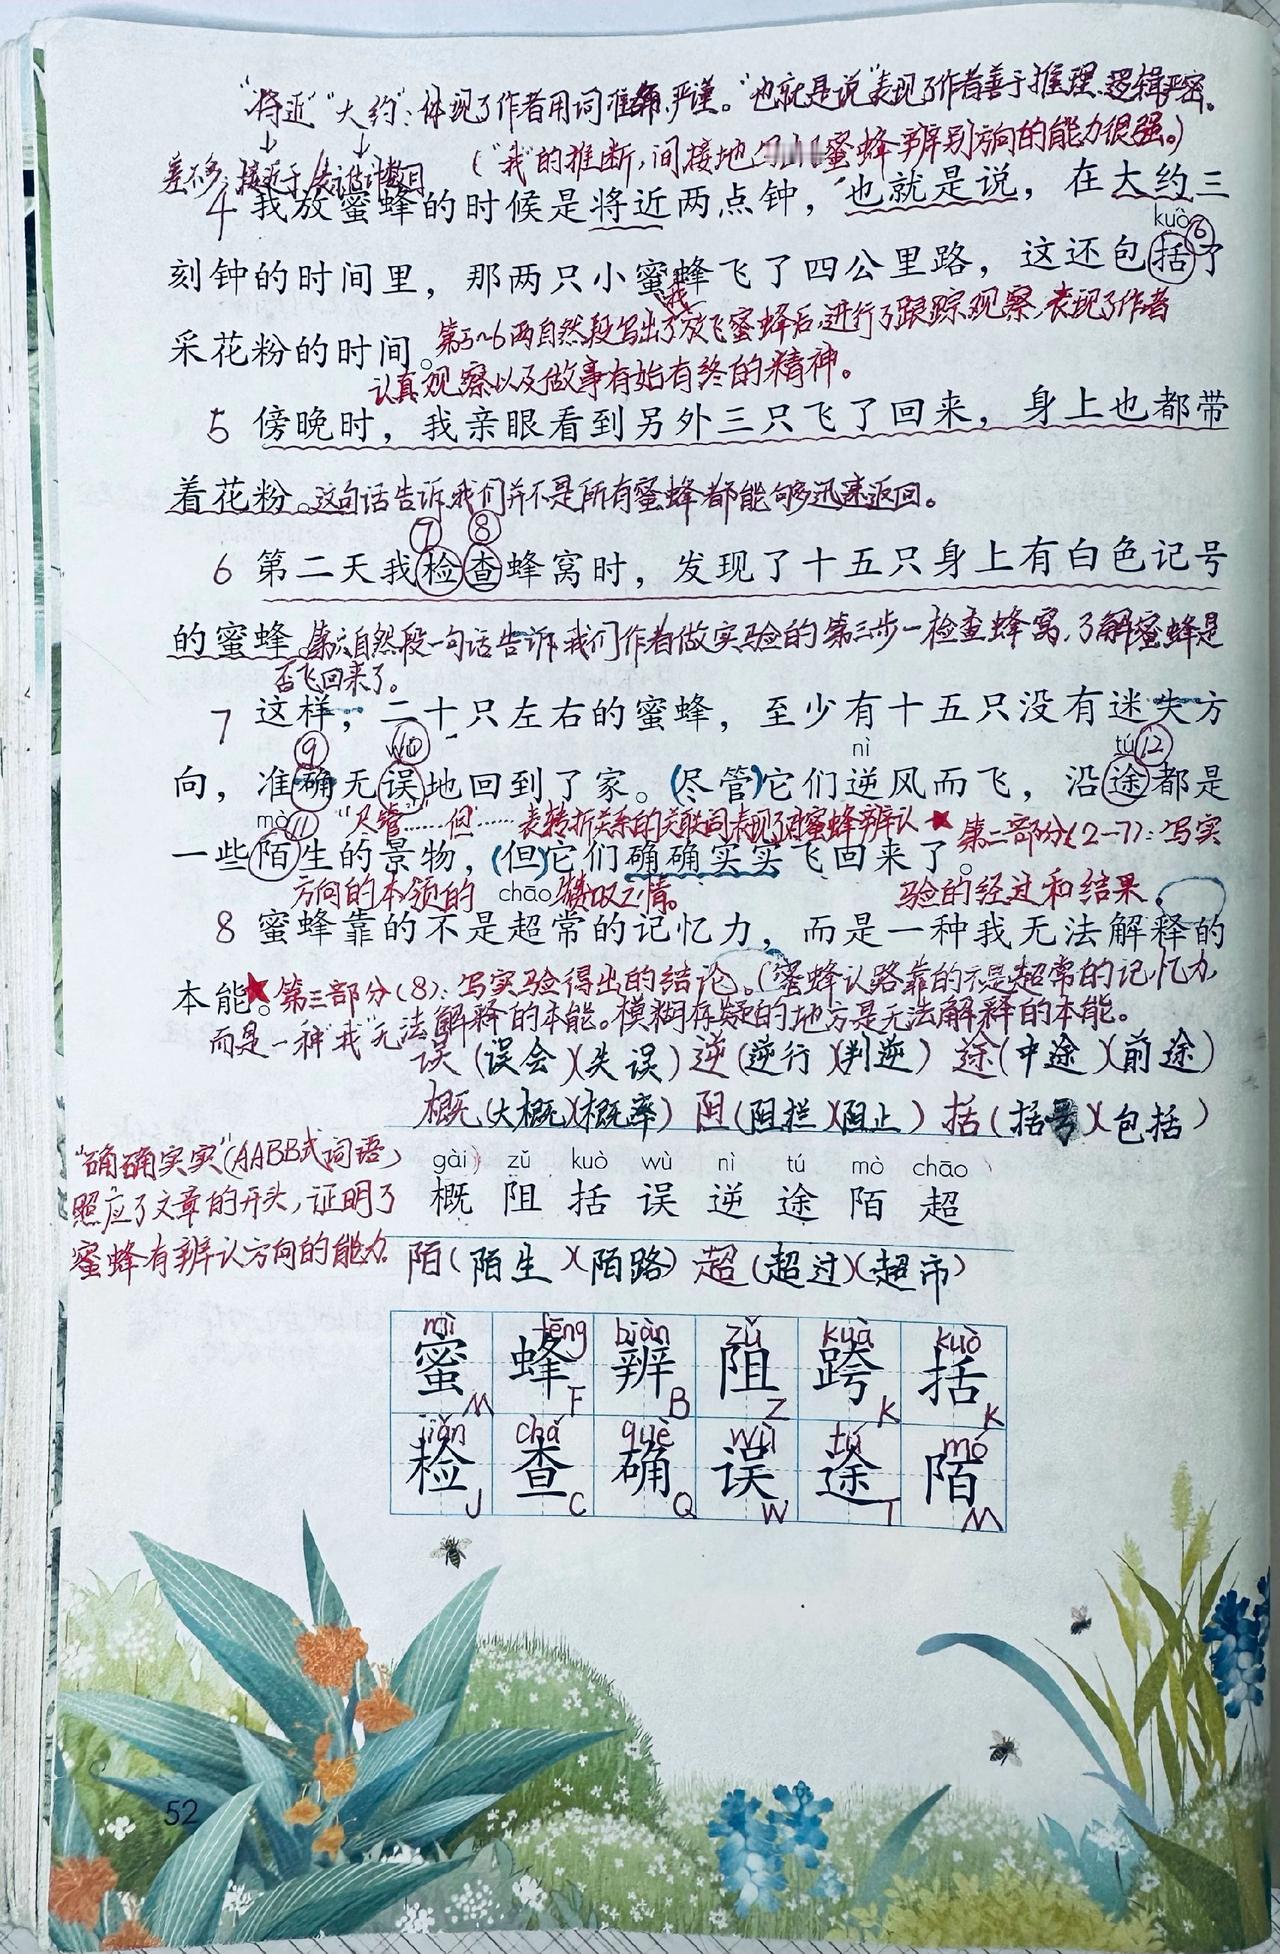 “将近”“大约”：体现了作者用词准确、严谨。“也就是说”表现了作者善于推理、逻辑严密。
差不多，接近于 估计数目 （“我”的推断，间接地 蜜蜂辨别方向的能力很强。）
4 我放蜜蜂的时候是将近两点钟，也就是说，在大约三
kuò ⑥
刻钟的时间里，那两只小蜜蜂飞了四公里路，这还包括了
我
采花粉的时间。第5~6两自然段写出了放飞蜜蜂后，进行了跟踪观察，表现了作者
认真观察以及做事有始有终的精神。
5 傍晚时，我亲眼看到另外三只飞了回来，身上也都带
着花粉。这句话告诉我们并不是所有蜜蜂都能够迅速返回。
⑦ ⑧
6 第二天我检查蜂窝时，发现了十五只身上有白色记号
的蜜蜂。第六自然段一句话告诉我们作者做实验的第三步—检查蜂窝，了解蜜蜂是
否飞回来了。
7 这样，二十只左右的蜜蜂，至少有十五只没有迷失方
⑨ wù ⑩ nì tú ⑫
向，准确无误地回到了家。（尽管）它们逆风而飞，沿途都是
mò ⑪ “尽管”……“但”……表转折关系的关联词表现了对蜜蜂辨认 ★第二部分（2—7）：写实
一些陌生的景物，（但）它们确确实实飞回来了。
方向的本领的 chāo 赞叹之情。 验的经过和结果。
8 蜜蜂靠的不是超常的记忆力，而是一种我无法解释的
本能。★第三部分（8）：写实验得出的结论。（蜜蜂认路靠的不是超常的记忆力
而是一种“我”无法解释的本能。模糊存疑的地方是无法解释的本能。
误（误会）（失误）逆（逆行）（判逆）途（中途）（前途）
概（大概）（概率）阻（阻拦）（阻止）括（括号）（包括）
“确确实实”（AABB式词语，
照应了文章的开头，证明了
蜜蜂有辨认方向的能力。
gài zǔ kuò wù nì tú mò chāo
概 阻 括 误 逆 途 陌 超
陌（陌生）（陌路）超（超过）（超市）
mì fēng biàn zǔ kuà kuò
蜜 蜂 辨 阻 跨 括
M F B Z K K
jiǎn chá què wù tú mò
检 查 确 误 途 陌
J C Q W T M
52